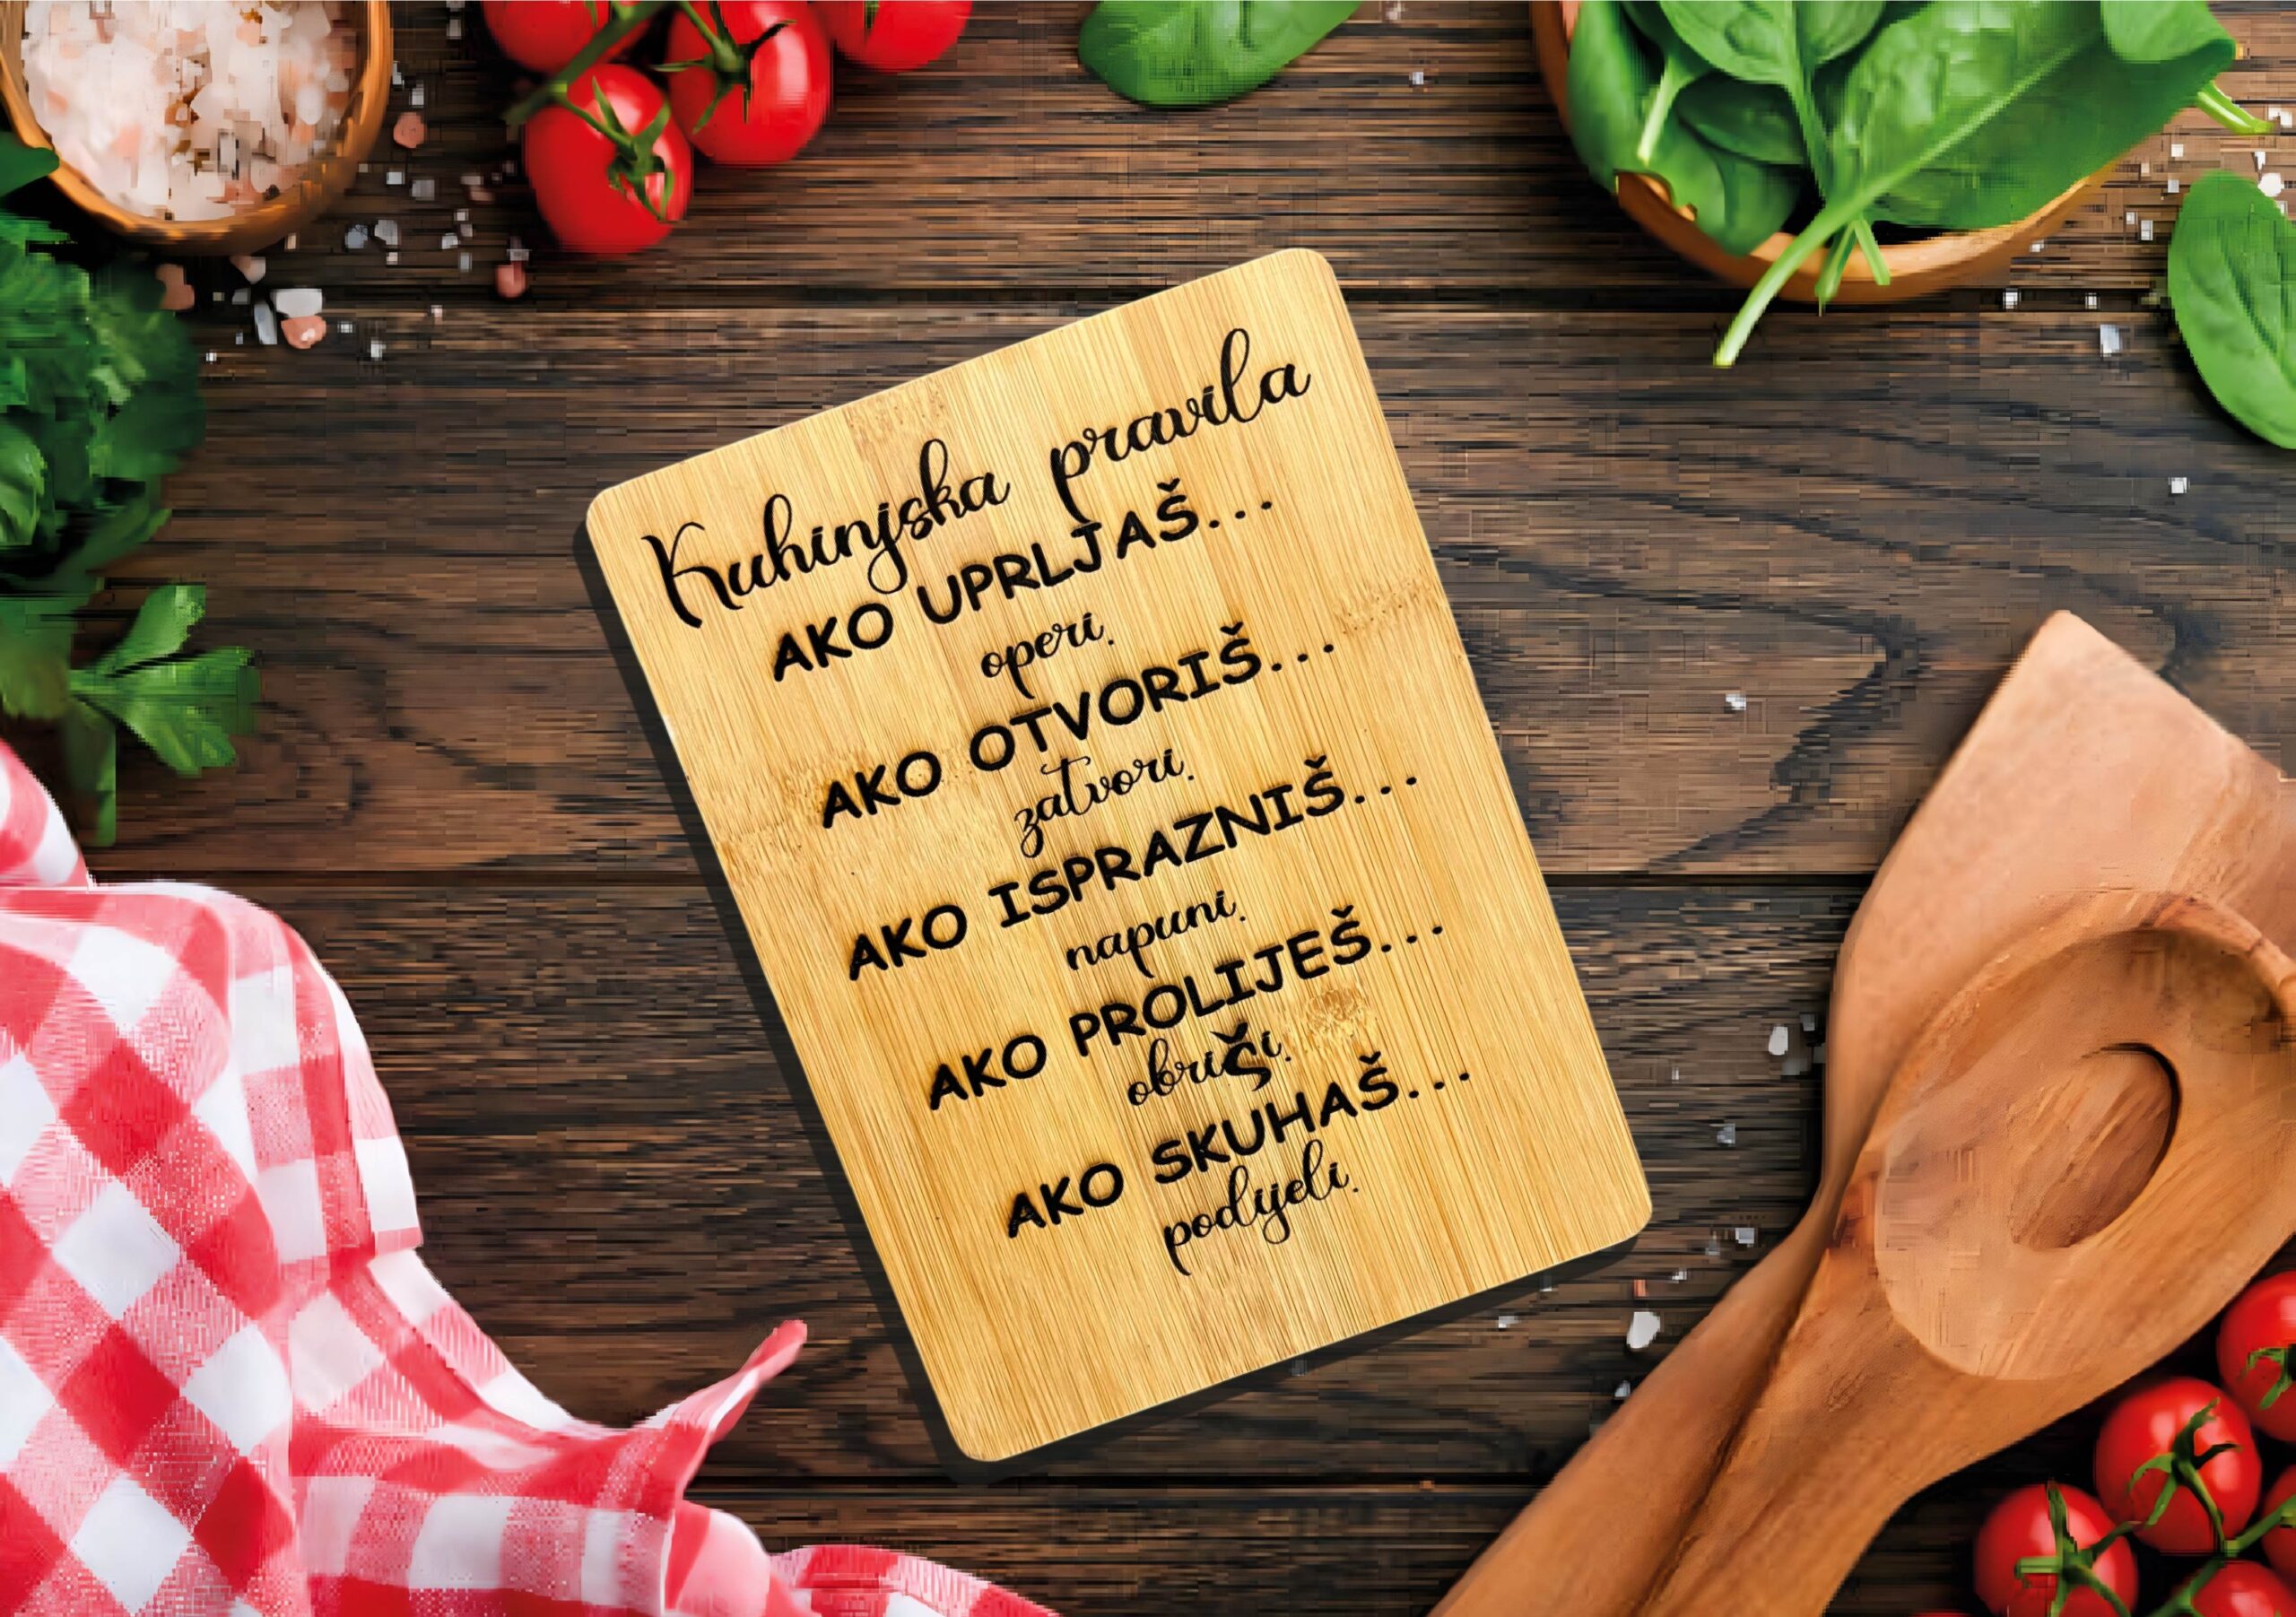 Kuhinjska pravila
AKO UPRLJAŠ...
operi.
AKO OTVORIŠ...
zatvori.
AKO ISPRAZNIŠ...
napuni.
AKO PROLIJEŠ...
obriši.
AKO SKUHAŠ...
podijeli.